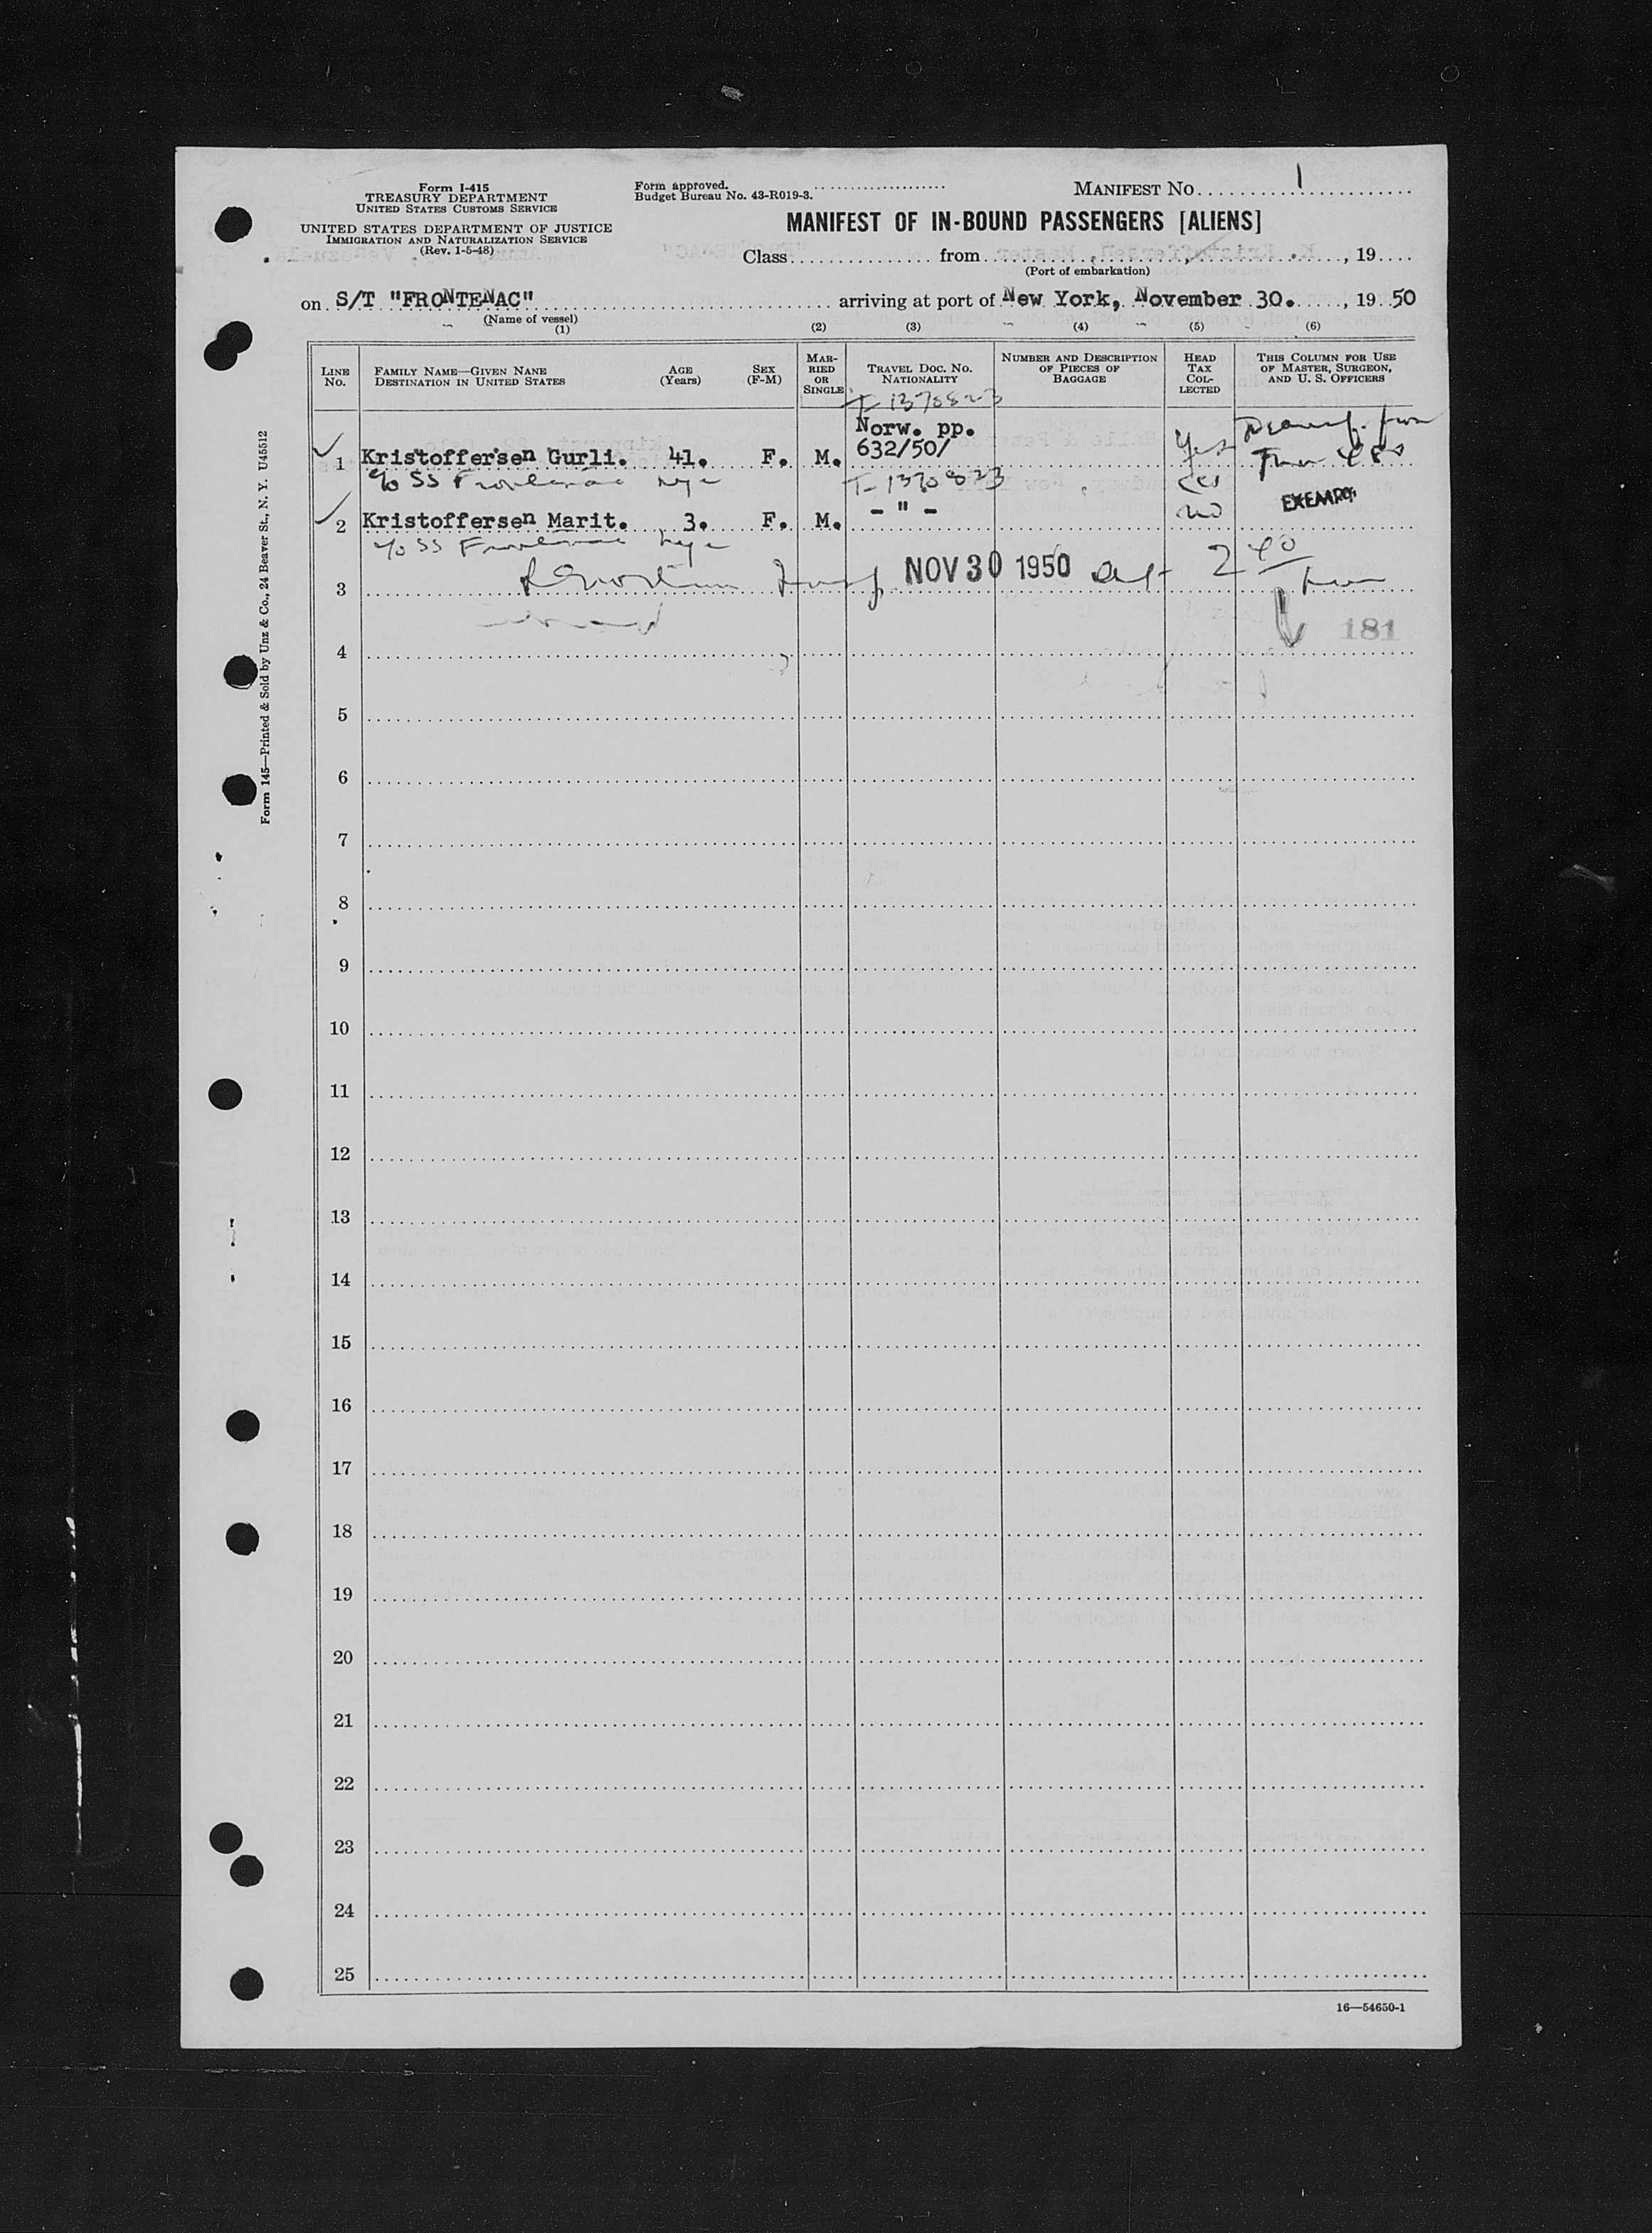 Form I-415
TREASURY DEPARTMENT
UNITED STATES CUSTOMS SERVICE
UNITED STATES DEPARTMENT OF JUSTICE
IMMIGRATION AND NATURALIZATION SERVICE
(Rev. 1-5-48)
Form approved.
Budget Bureau No. 43-R019-3.
MANIFEST NO. 1
MANIFEST OF IN-BOUND PASSENGERS [ALIENS]
Class from , 19
(Port of embarkation)
on S/T "FRONTENAC" arriving at port of New York, November 30. , 19 50
(Name of vessel)
(1) (2) (3) (4) (5) (6)
LINE NO. FAMILY NAME—GIVEN NANE DESTINATION IN UNITED STATES AGE (Years) SEX (F-M) MARRIED OR SINGLE TRAVEL DOC. NO. NATIONALITY NUMBER AND DESCRIPTION OF PIECES OF BAGGAGE HEAD TAX COLLECTED THIS COLUMN FOR USE OF MASTER, SURGEON, AND U. S. OFFICERS
T-1370823
Norw. pp.
1 Kristoffersen Gurli. 41. F. M. 632/50/ Yes
c/o SS Frontenac nyc T-1370823 yes
2 Kristoffersen Marit. 3. F. M. - " - no EXEMPT
c/o SS Frontenac nyc
3 NOV 30 1950 2 40
181
4
5
6
7
8
9
10
11
12
13
14
15
16
17
18
19
20
21
22
23
24
25
16—54650-1
Form 145—Printed & Sold by Unz & Co., 24 Beaver St., N. Y. U45512